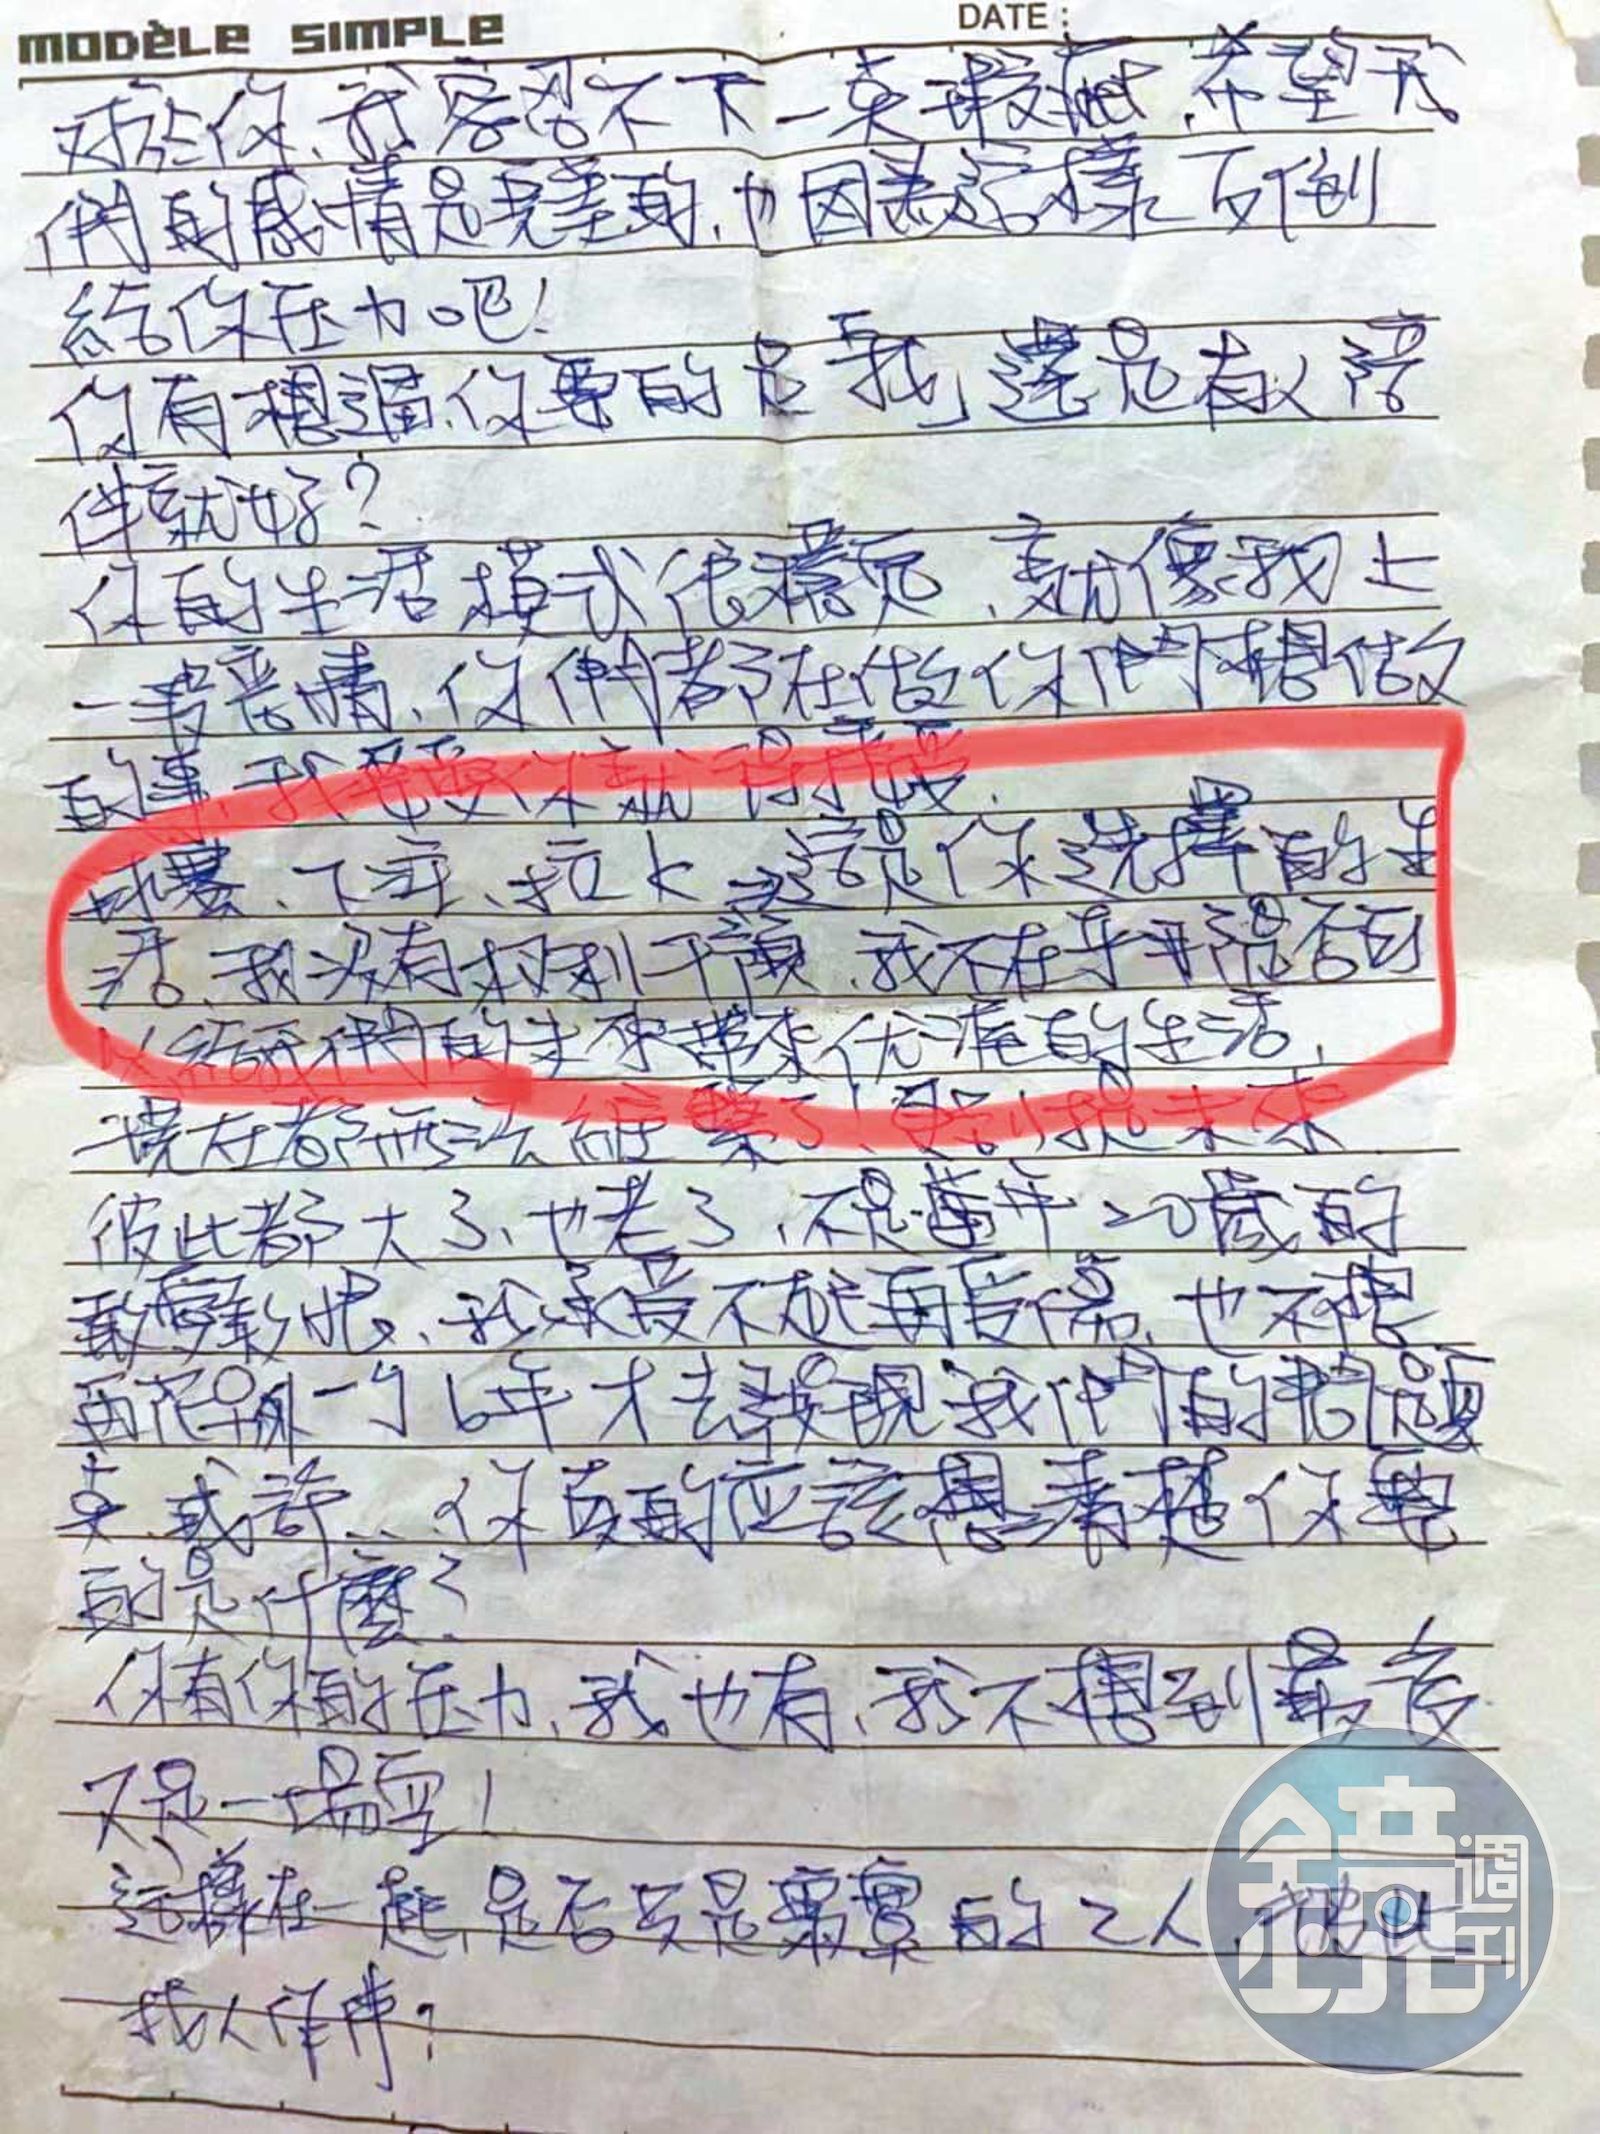 MODÈLE SIMPLE
DATE:
對於你、我容忍不下一點瑕疵、希望我
們的感情是完美的、也因為這樣反倒
給你壓力吧!
你有想過、你要的是「我」還是有人陪
伴就好?
你的生活模式很穩定、就像我上
一段感情、你們都在做你們想做
的事、我要愛你就得接受、
球賽、下注、拉K 這是你選擇的生
活、我沒有權利干預、我不在乎是否可
以給我們的未來帶來优渥的生活、
現在都無法維繫了!更別提未來
彼此都大了、也老了、不是當年20歲的
敢愛敢恨、我承受不起再受傷、也不想
再花另外一個6年才去發現我們的問題
點、或許...你真的應該想清楚你要
的是什麼?
你有你的壓力、我也有、我不想到最後
又是一場空!
這樣在一起、是否只是寂寞的2人、彼此
找人作陪?
鏡週刊